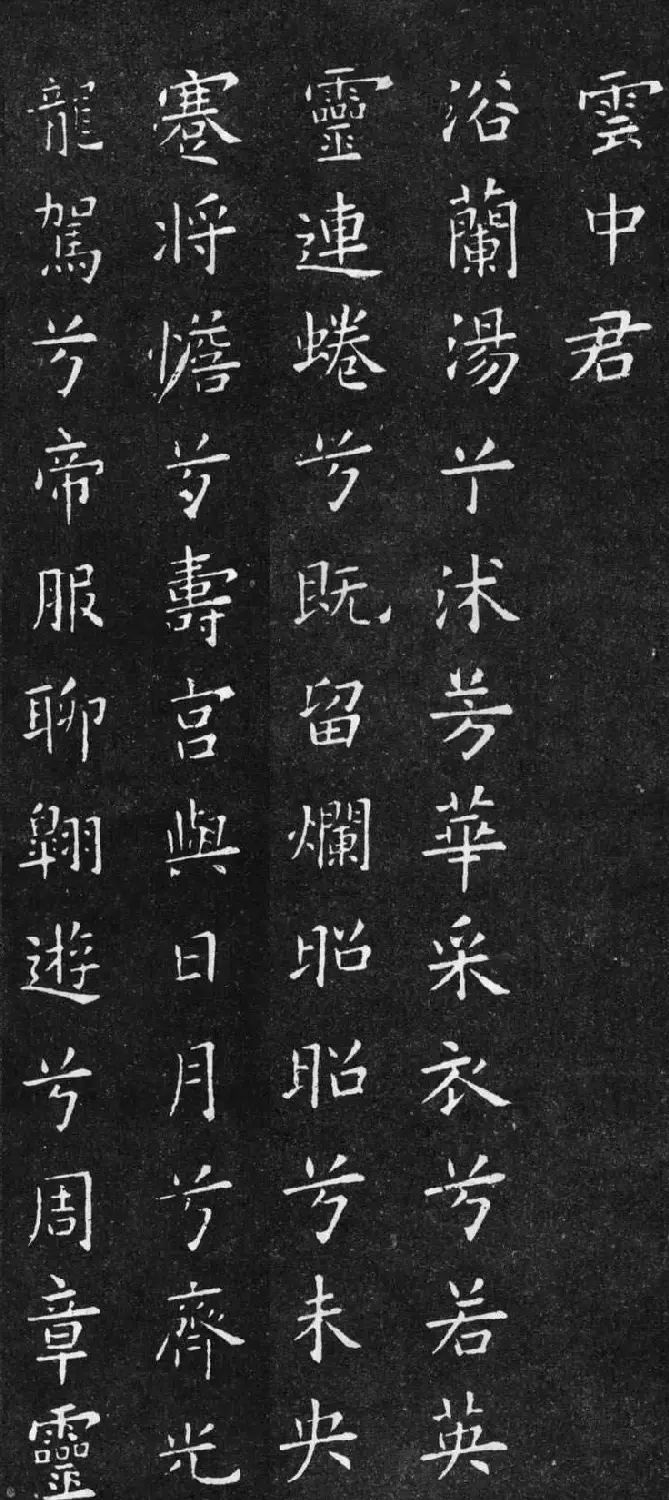 雲中君
浴蘭湯兮沐芳華采衣兮若英
靈連蜷兮既留爛昭昭兮未央
蹇將憺兮壽宮與日月兮齊光
龍駕兮帝服聊翱遊兮周章靈